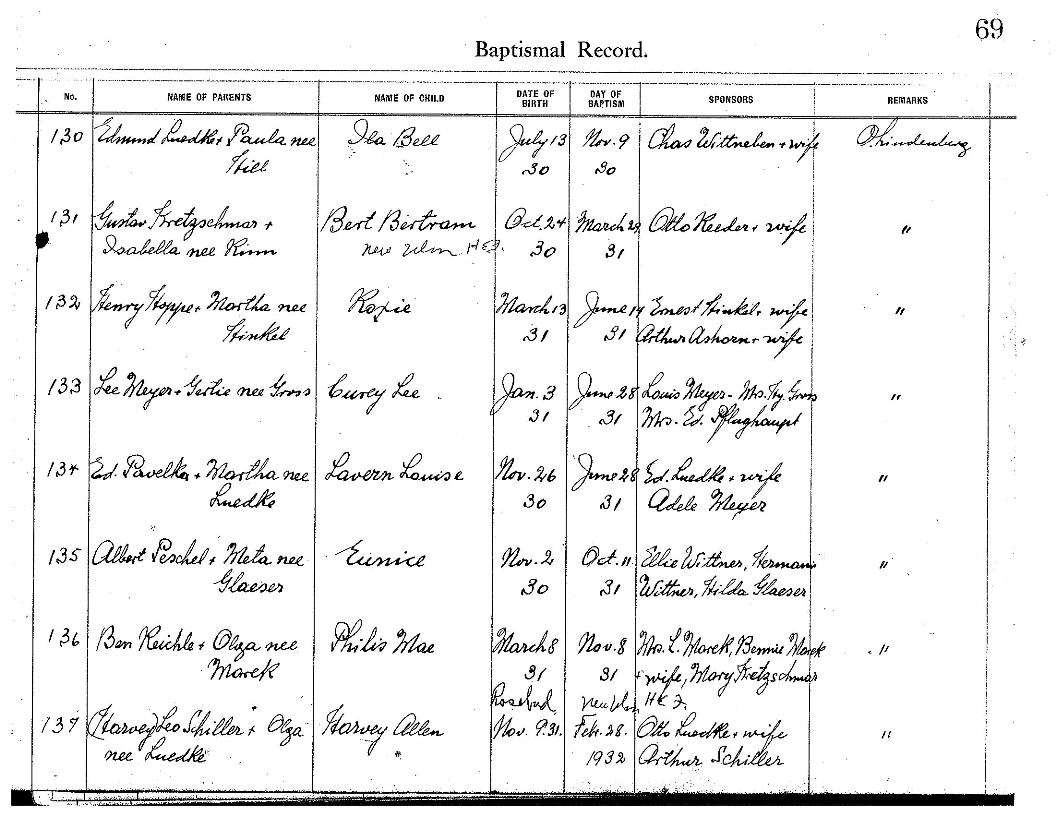 69
Baptismal Record.
No. NAME OF PARENTS NAME OF CHILD DATE OF BIRTH DAY OF BAPTISM SPONSORS REMARKS
130 Edmund Luedke + Paula nee Ila Bell July 13 Nov. 9 Chas Wittneben + wife O. Lindenberg
Hill 30 30
131 Gustav Kretzschmar + Bert Bertram Oct. 24 March 29 Otto Reeder + wife "
Isabella nee Kinn New Ulm 30 31
132 Henry Hoppe + Martha nee Roxie March 13 June 14 Ernest Hinkel + wife "
Hinkel 31 31 Arthur Ashorn + wife
133 Lee Meyer + Gertie nee Gross Curey Lee Jan. 3 June 28 Louis Meyer - Mrs. Hy. Gross "
31 31 Mrs. Ed. Pflughaupt
134 Ed. Pavelka + Martha nee Lavern Louise Nov. 26 June 28 Ed. Luedke + wife "
Luedke 30 31 Adele Meyer
135 Albert Peschel + Meta nee Eunice Nov. 2 Oct. 11 Ellie Wittner, Hermann "
Glaeser 30 31 Wittner, Hilda Glaeser
136 Ben Reichle + Olga nee Philis Mae March 8 Nov. 8 Mrs. L. Marek, Bennie Marek "
Marek 31 31 + wife, Mary Kretzschmar
Rosebud New Ulm
137 (Harvey) Leo Schiller + Olga Harvey Allen Nov. 9. 31. Feb. 28. Otto Luedke + wife "
nee Luedke 1932 Arthur Schiller